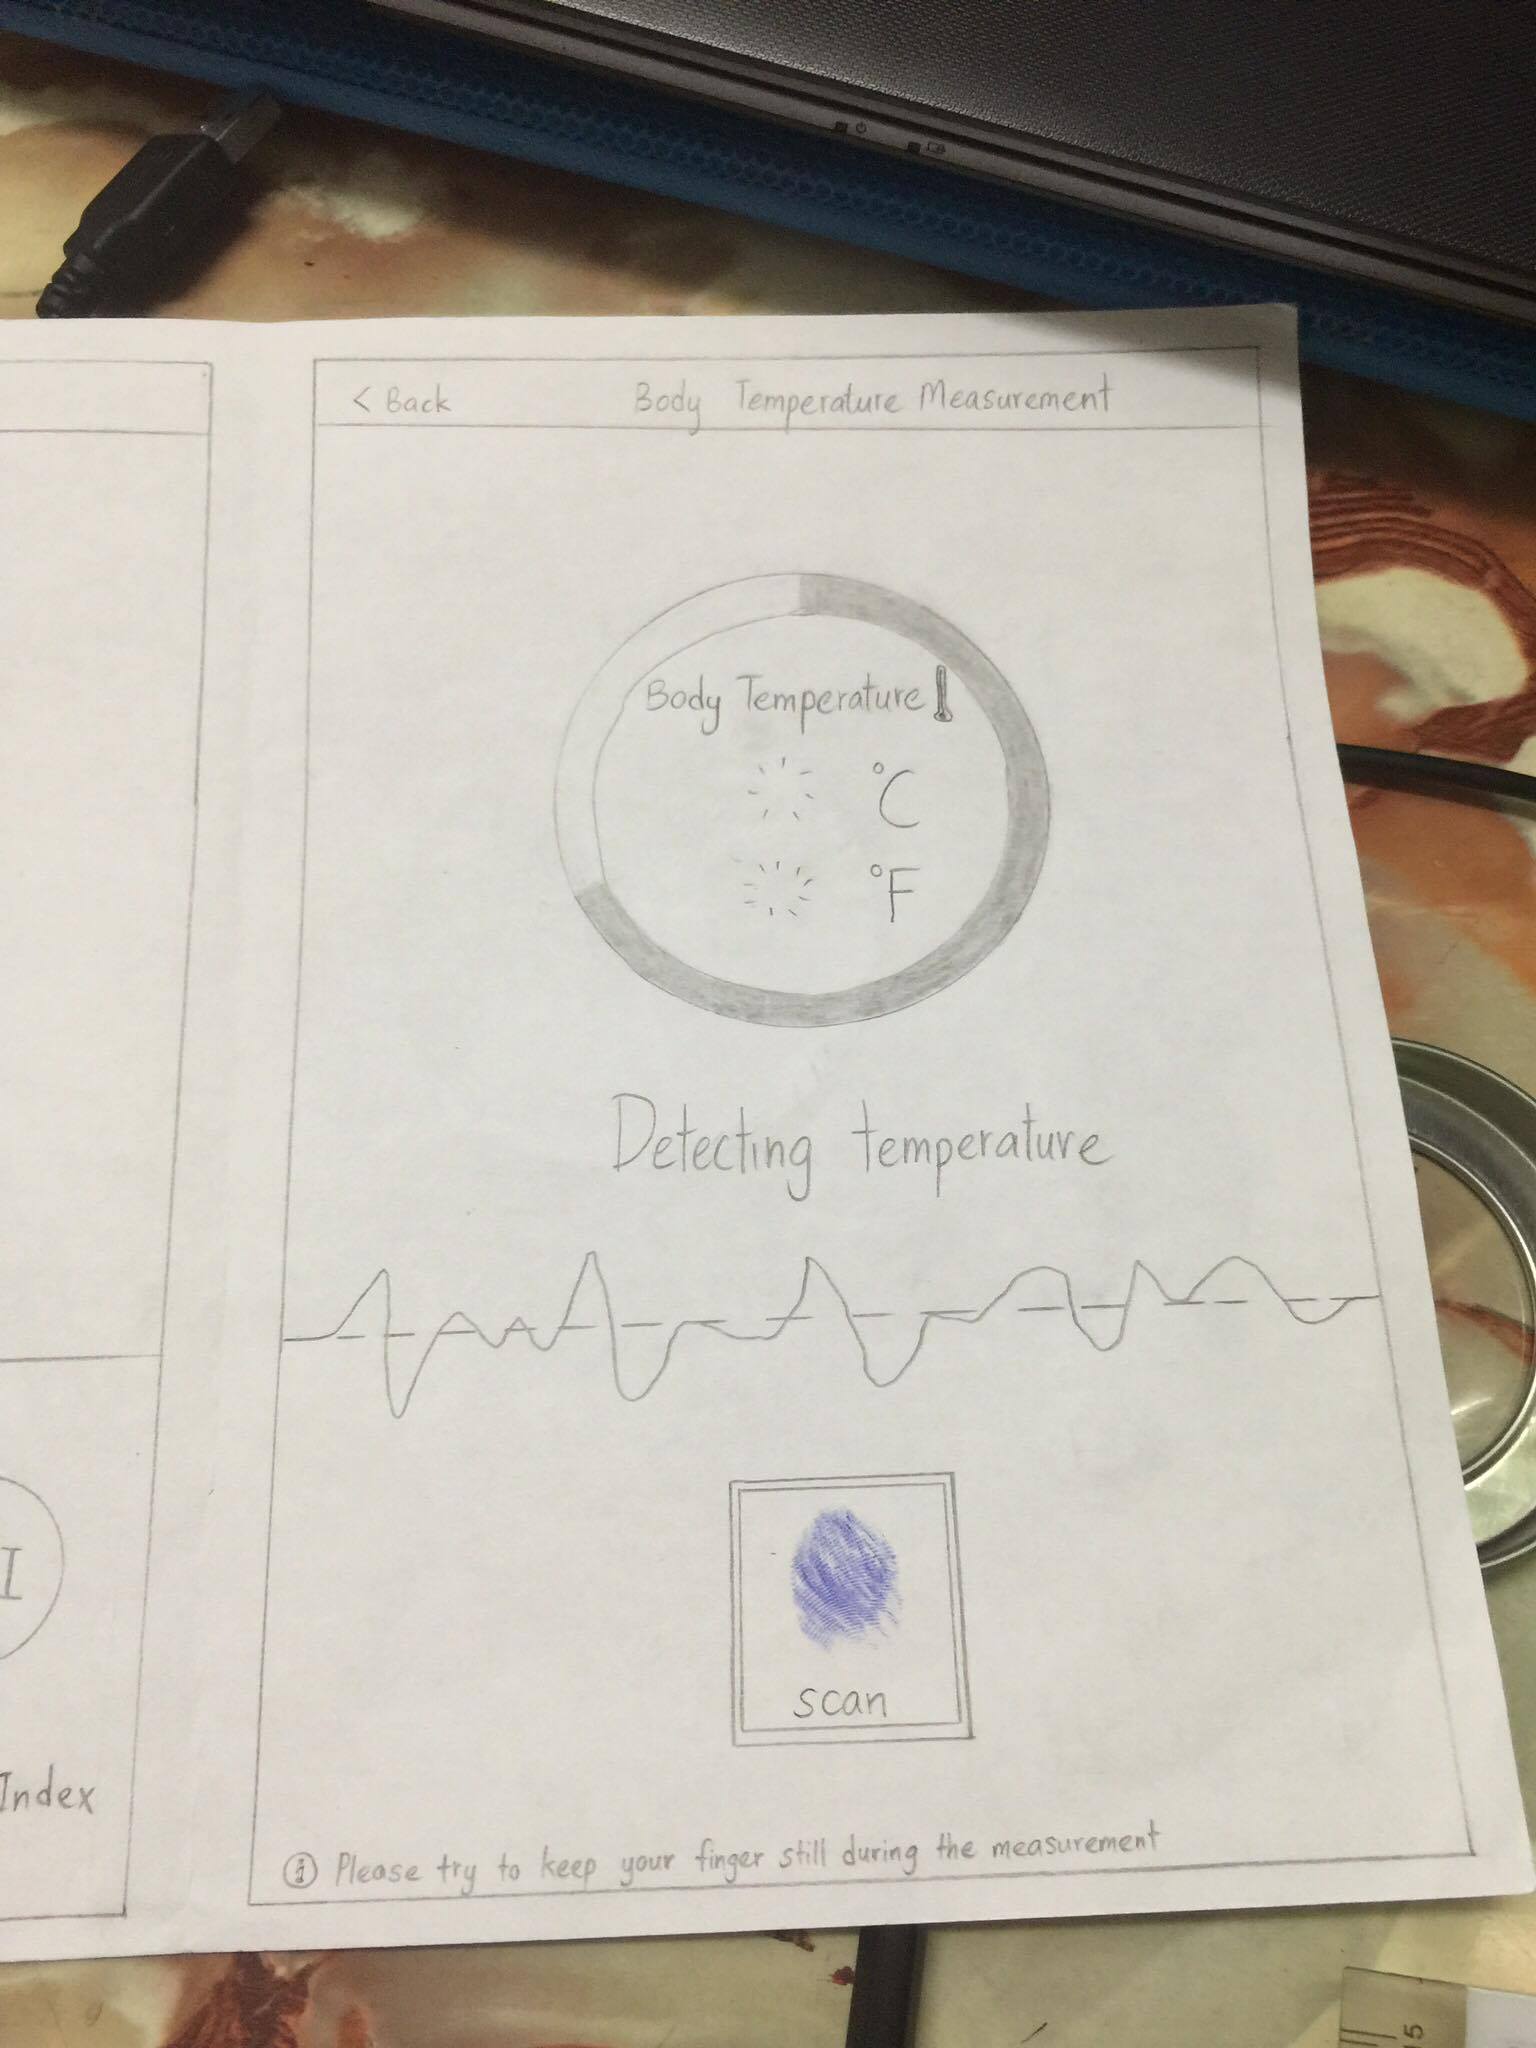 < Back Body Temperature Measurement
Body Temperature
°C
°F
Detecting temperature
scan
I
Index
i Please try to keep your finger still during the measurement
15